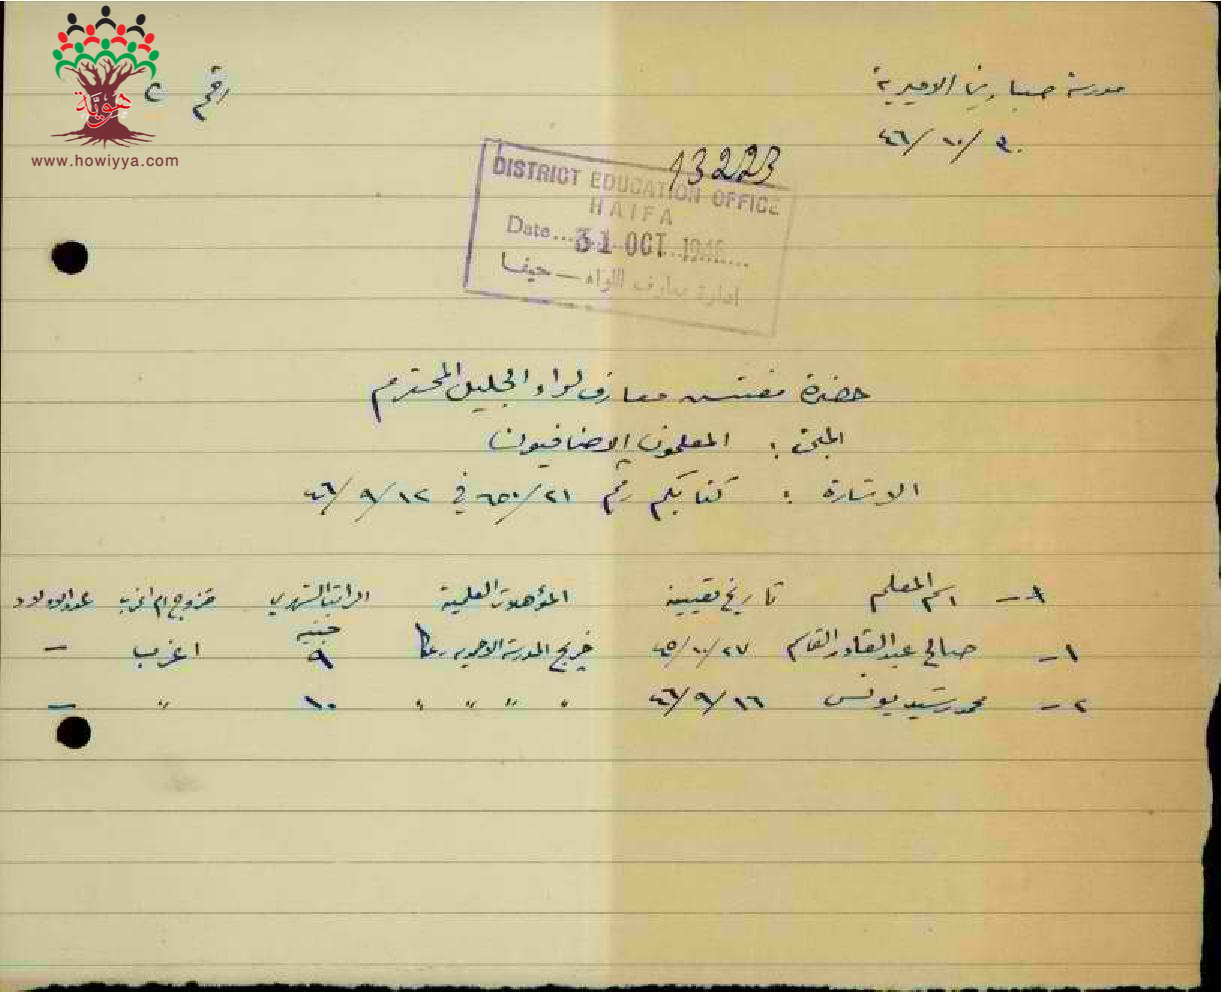 هوية
www.howiyya.com
مدرسة صبارين الاميرية
رقم ٢
٤٦/١٠/٣٠
13223
DISTRICT EDUCATION OFFICE
HAIFA
Date... 31 OCT 1946
ادارة معارف اللواء — حيفا
حضرة مفتش معارف لواء الجليل المحترم
المبحث : المعلمون الاضافيون
الاشارة : كتابكم رقم ٢١/ في ٤٦/٩/١٢
اسم المعلم تاريخ تعيينه المؤهلات العلمية الراتب الشهري متزوج ام اعزب عدد الاولاد
جنيه
١- صالح عبد القادر القاسم ٤٥/١٠/٢٧ خريج المدرسة ٩ اعزب –
٢- محمد رشيد يونس ٤٦/٩/١٦ " " " " ١٠ " –